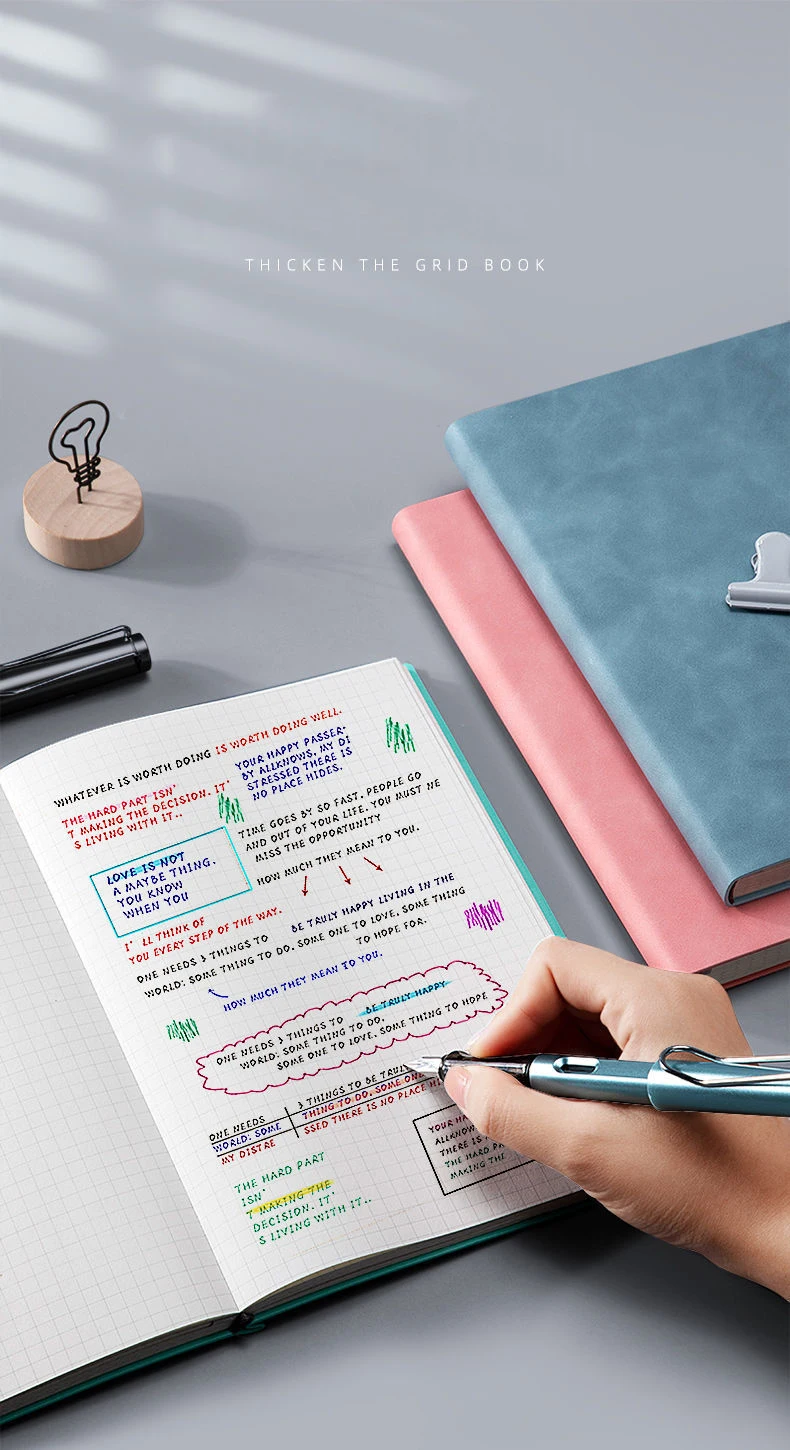 THICKEN THE GRID BOOK
WHATEVER IS WORTH DOING IS WORTH DOING WELL.
THE HARD PART ISN'
T MAKING THE DECISION. IT'
S LIVING WITH IT..
YOUR HAPPY PASSER-
BY ALLKNOWS, MY DI
STRESSED THERE IS
NO PLACE HIDES.
TIME GOES BY SO FAST, PEOPLE GO
AND OUT OF YOUR LIFE. YOU MUST NE
MISS THE OPPORTUNITY
HOW MUCH THEY MEAN TO YOU.
LOVE IS NOT
A MAYBE THING.
YOU KNOW
WHEN YOU
I' LL THINK OF
YOU EVERY STEP OF THE WAY.
ONE NEEDS 3 THINGS TO BE TRULY HAPPY LIVING IN THE
WORLD: SOME THING TO DO, SOME ONE TO LOVE, SOME THING
TO HOPE FOR.
HOW MUCH THEY MEAN TO YOU.
ONE NEEDS 3 THINGS TO BE TRULY HAPPY
WORLD: SOME THING TO DO,
SOME ONE TO LOVE, SOME THING TO HOPE
ONE NEEDS 3 THINGS TO BE TRULY
WORLD: SOME THING TO DO, SOME ONE
MY DISTRE SSED THERE IS NO PLACE HI
YOUR HA
ALLKNOW
THERE IS
THE HARD PA
MAKING THE
THE HARD PART
ISN'
T MAKING THE
DECISION. IT'
S LIVING WITH IT..